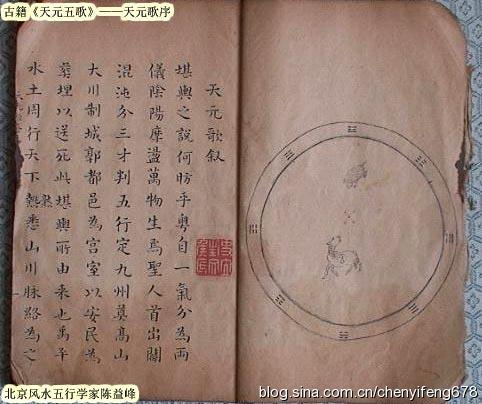 古籍《天元五歌》——天元歌序
天元歌叙
堪輿之說何昉乎粤自一氣分為兩
儀陰陽摩盪萬物生焉聖人首出闢
混沌分三才判五行定九州奠高山
大川制城郭都邑為宫室以安民為
葬埋以送死此堪輿所由来也禹平
水土周行天下熟悉山川脉絡為之
北京风水五行学家陈益峰
blog.sina.com.cn/chenyifeng678